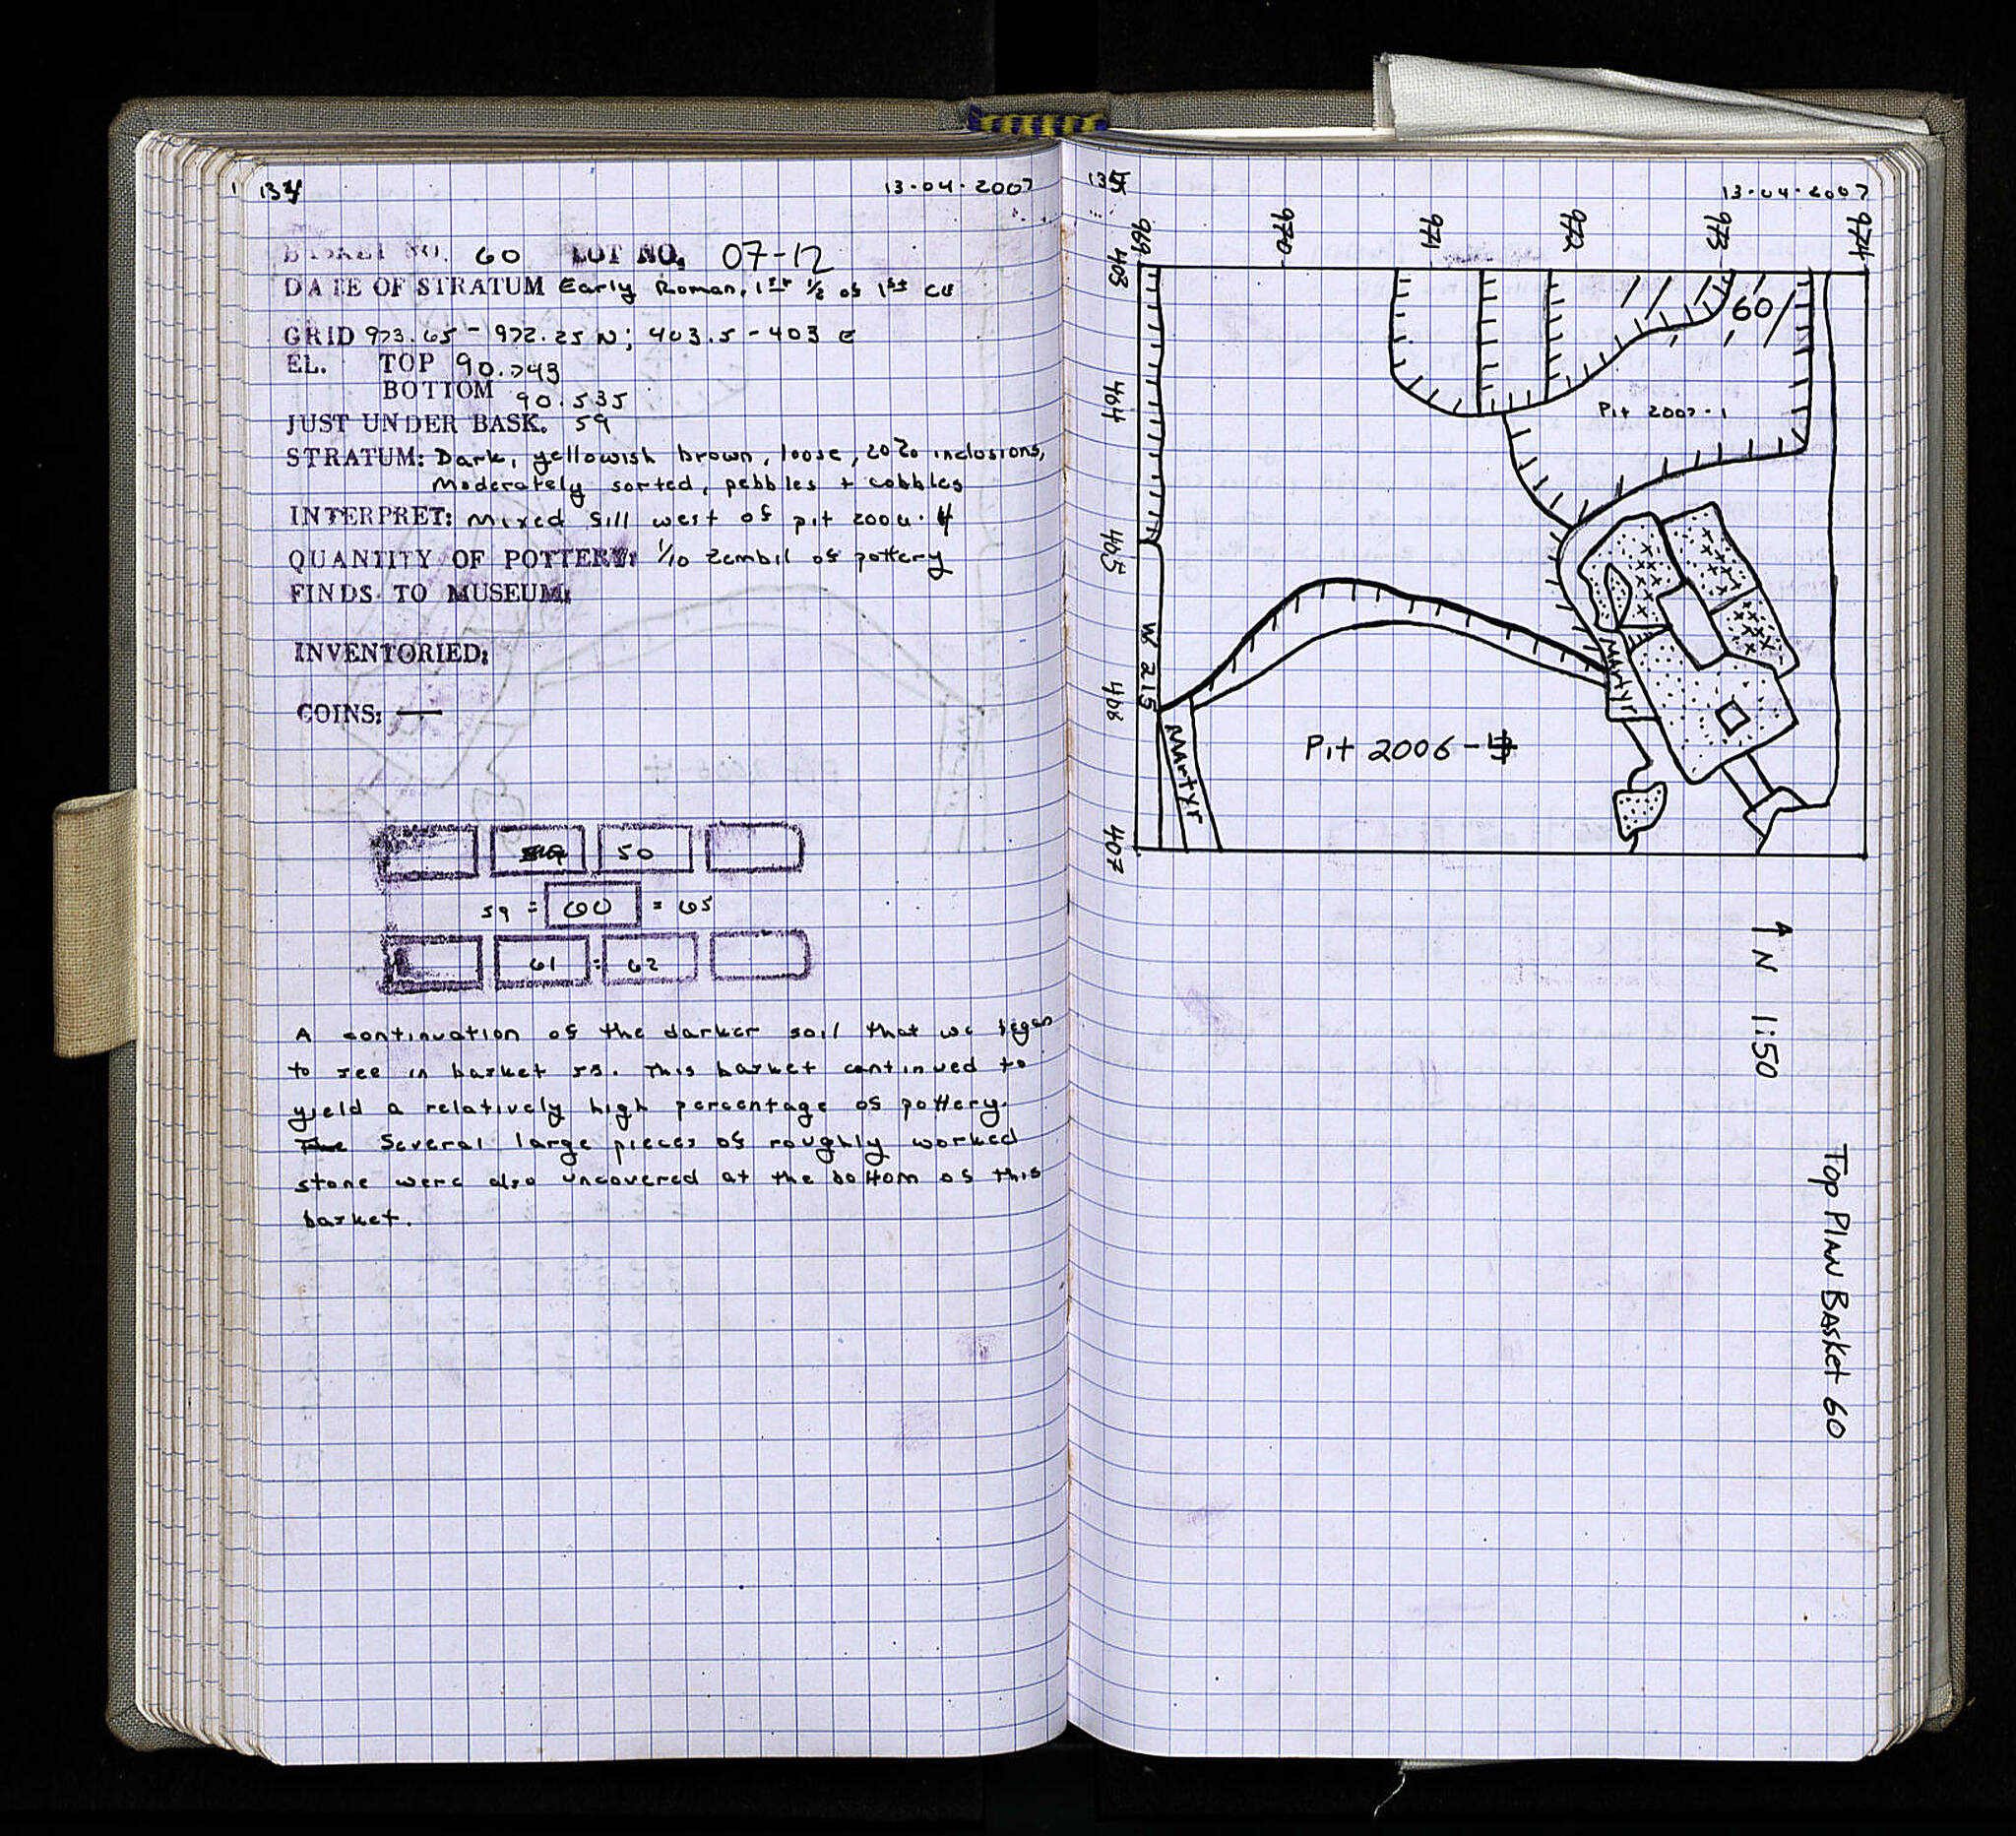 134
13.04.2007
BASKET NO. 60 LOT NO. 07-12
DATE OF STRATUM Early Roman, 1st ½ of 1st CE
GRID 973.65 - 972.25 N; 403.5 - 403 E
EL. TOP 90.743
BOTTOM 90.535
JUST UNDER BASK. 59
STRATUM: Dark, yellowish brown, loose, 20% inclosions,
Moderately sorted, pebbles + cobbles
INTERPRET: Mixed fill west of pit 2006.4
QUANTITY OF POTTERY: 1/10 Zembil of pottery
FINDS TO MUSEUM:
INVENTORIED:
COINS: —
50
59 = 60 = 65
61 = 62
A continuation of the darker soil that we began
to see in basket 58. This basket continued to
yield a relatively high percentage of pottery.
Several large pieces of roughly worked
stone were also uncovered at the bottom of this
basket.
135
13.04.2007
969 970 971 972 973 974
403
404
405
406
407
60
Pit 2007-1
W 215
Martyr
Martyr
Pit 2006-4
↑ N 1:50
Top Plan Basket 60